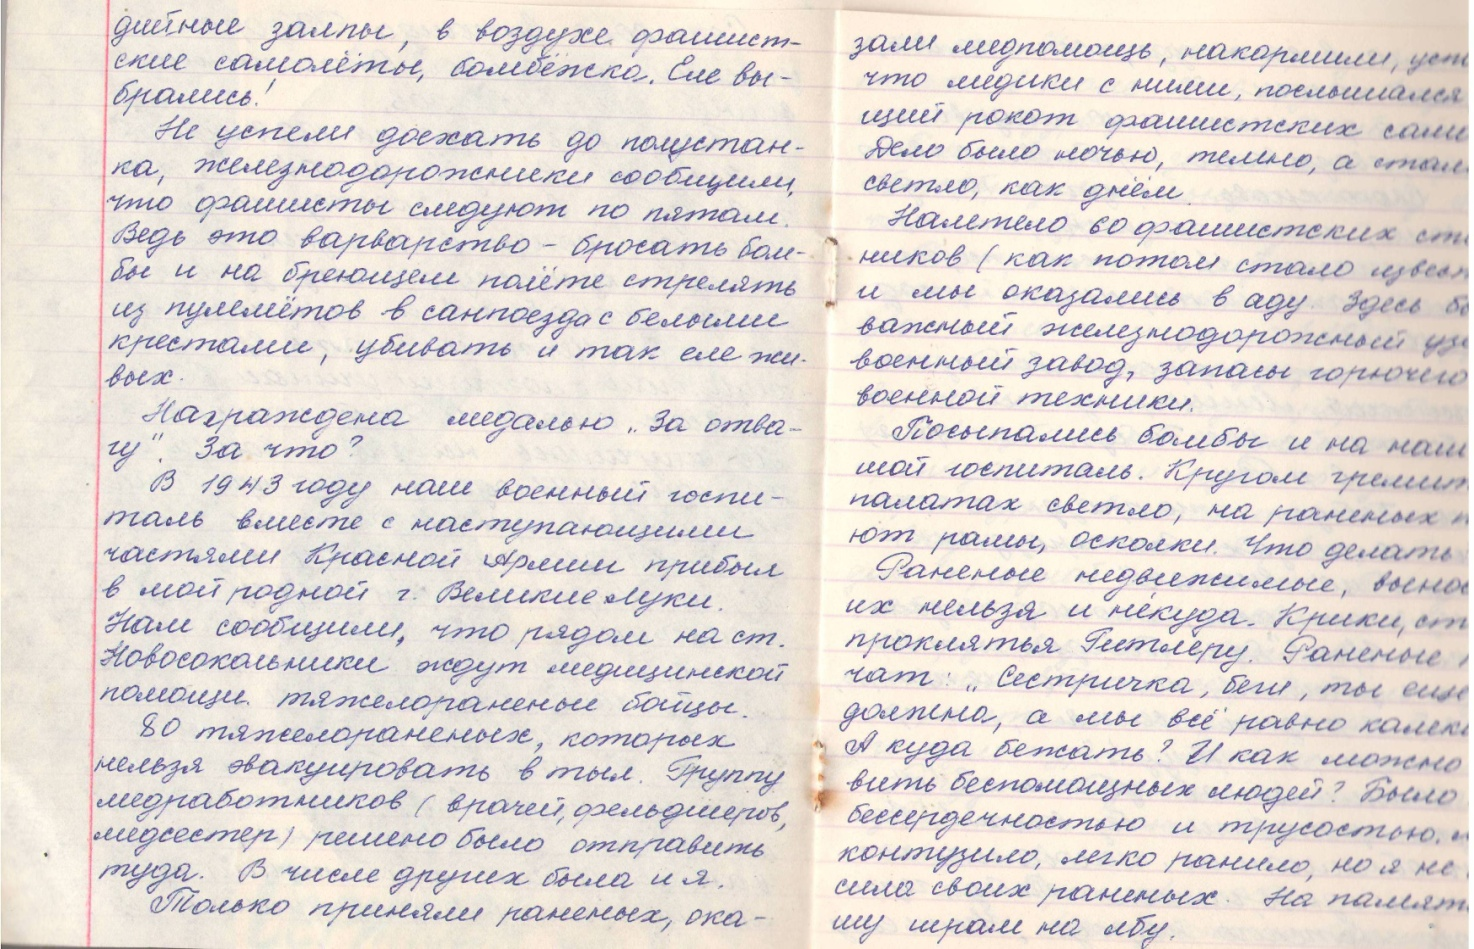 дийные залпы, в воздухе фашист-
ские самолёты, бомбёжка. Еле вы-
брались!
Не успели доехать до полустан-
ка, железнодорожники сообщили,
что фашисты следуют по пятам.
Ведь это варварство - бросать бом-
бы и на бреющем полёте стрелять
из пулемётов в санпоезда с белыми
крестами, убивать и так еле жи-
вых.
Награждена медалью „За отва-
гу". За что?
В 1943 году наш военный госпи-
таль вместе с наступающими
частями Красной Армии прибыл
в мой родной г. Великие Луки.
Нам сообщили, что рядом на ст.
Новосокольники ждут медицинской
помощи тяжелораненые бойцы.
80 тяжелораненых, которых
нельзя эвакуировать в тыл. Группу
медработников (врачей, фельдшеров,
медсестер) решено было отправить
туда. В числе других была и я.
Только приняли раненых, ока-
зали медпомощь, накормили,
что медики с ними, послышался
щий рокот фашистских
Дело было ночью, темно, а
светло, как днём.
Налетело 60 фашистских
ников (как потом стало
и мы оказались в аду. Здесь
важный железнодорожный
военный завод, запасы горючего
военной техники.
Посыпались бомбы и на наш
мой госпиталь. Кругом
палатах светло, на раненых
ют рамы, осколки. Что делать
Раненые недвижимые,
их нельзя и некуда. Крики,
проклятья Гитлеру. Раненые
чат: „Сестричка, беги, ты еще
должна, а мы всё равно
А куда бежать? И как можно
вить беспомощных людей? Было
бессердечностью и трусостью.
контузило, легко ранило, но я не
сила своих раненых. На
шу шрам на лбу.